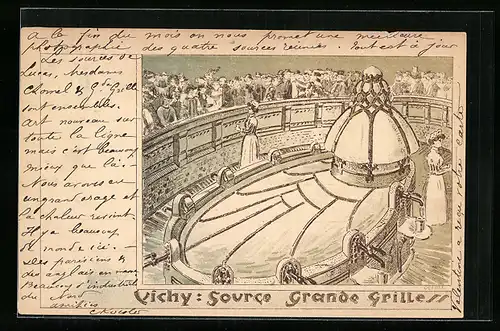 a la fin du mois on nous promet une meilleure
photographie des quatre sources réunies. Tout est à jour
Les sources de
Lucas, Mesdames
Chomel & Gde Grille
sont ensembles.
Art nouveau sur
toute la ligne
mais c'est beaucoup
mieux que là.
Nous avons eu
un grand orage et
la chaleur revient.
Il y a beaucoup
de monde ici —
Des parisiens &
des anglais en masse
Beaucoup d'industriels
du Nord
amitiés
Valentine a reçu votre carte
Vichy : Source Grande Grille